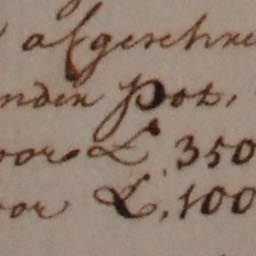 afgeschre
nden Pot,
oor £ 350
oor £, 100